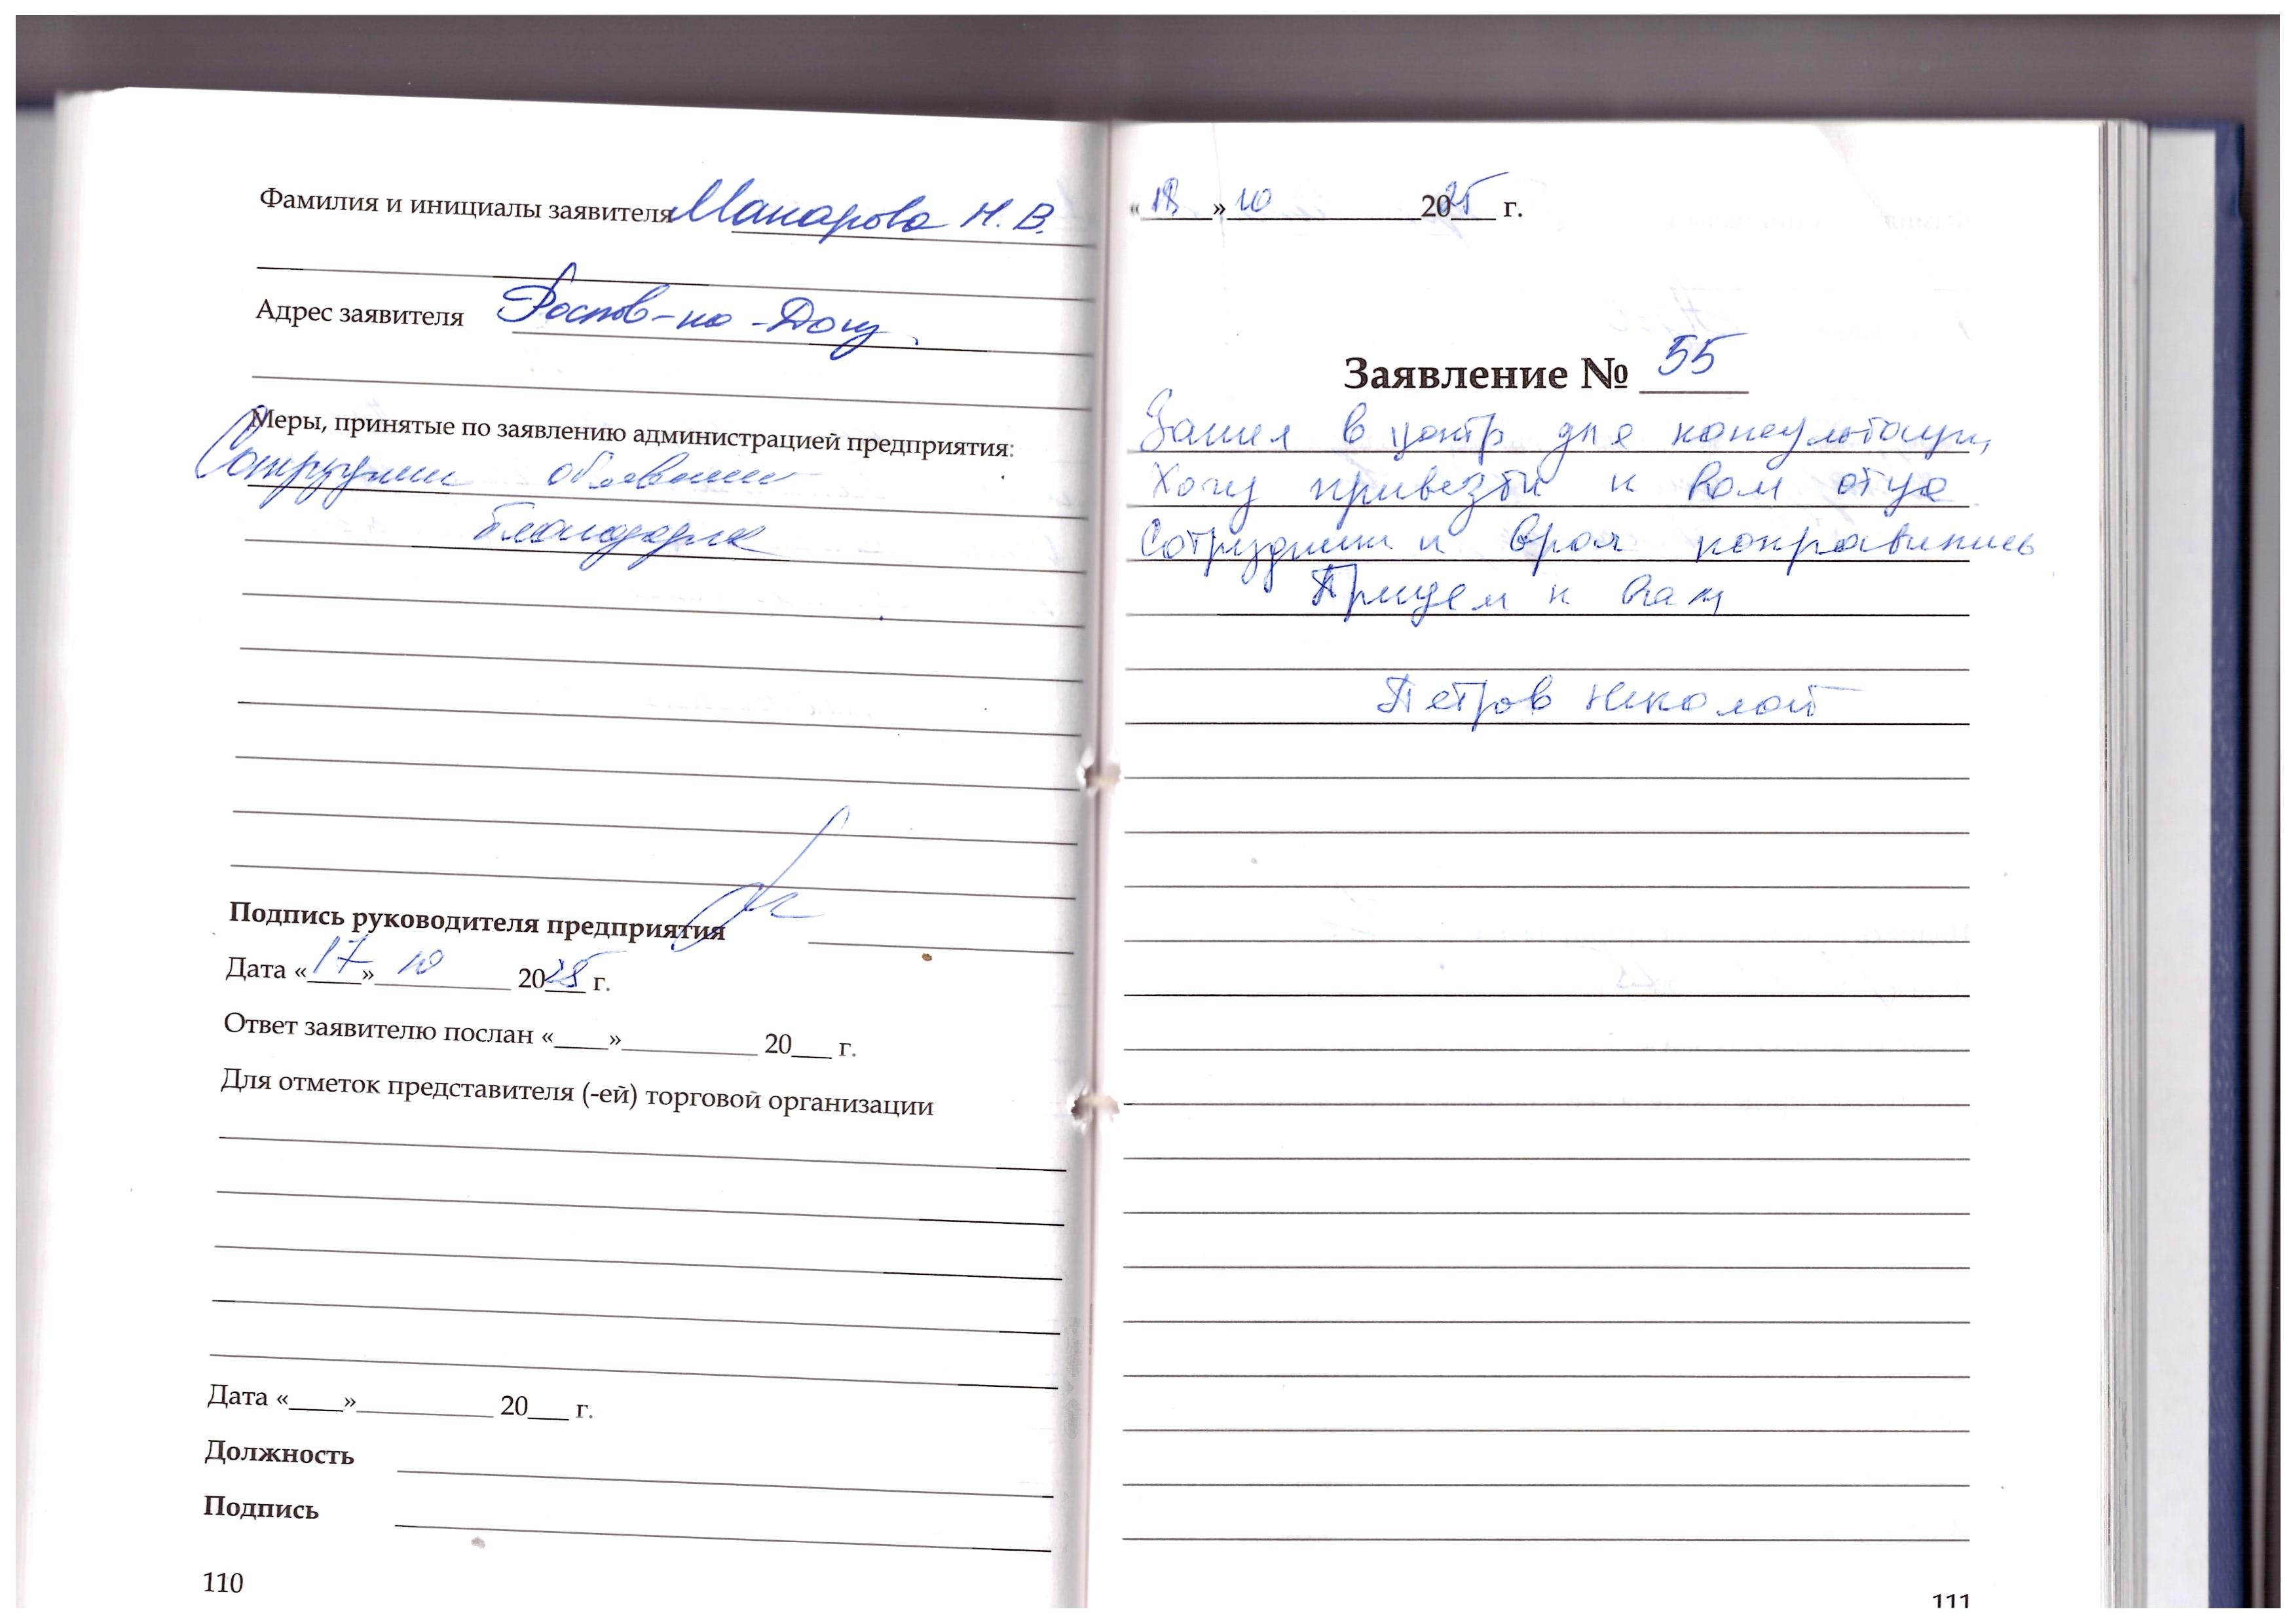 Фамилия и инициалы заявителя Макарова Н. В.
Адрес заявителя Ростов-на-Дону.
Меры, принятые по заявлению администрацией предприятия:
объявлена
благодарность
Подпись руководителя предприятия
Дата «17» 10 2025 г.
Ответ заявителю послан «____»__________ 20___ г.
Для отметок представителя (-ей) торговой организации
Дата «____»__________ 20___ г.
Должность
Подпись
110
«18» 10 2025 г.
Заявление № 55
Зашел в центр для консультации,
Хочу привезти к Вам отца
Сотрудники и врач понравились
Придем к Вам
Петров Николай
111